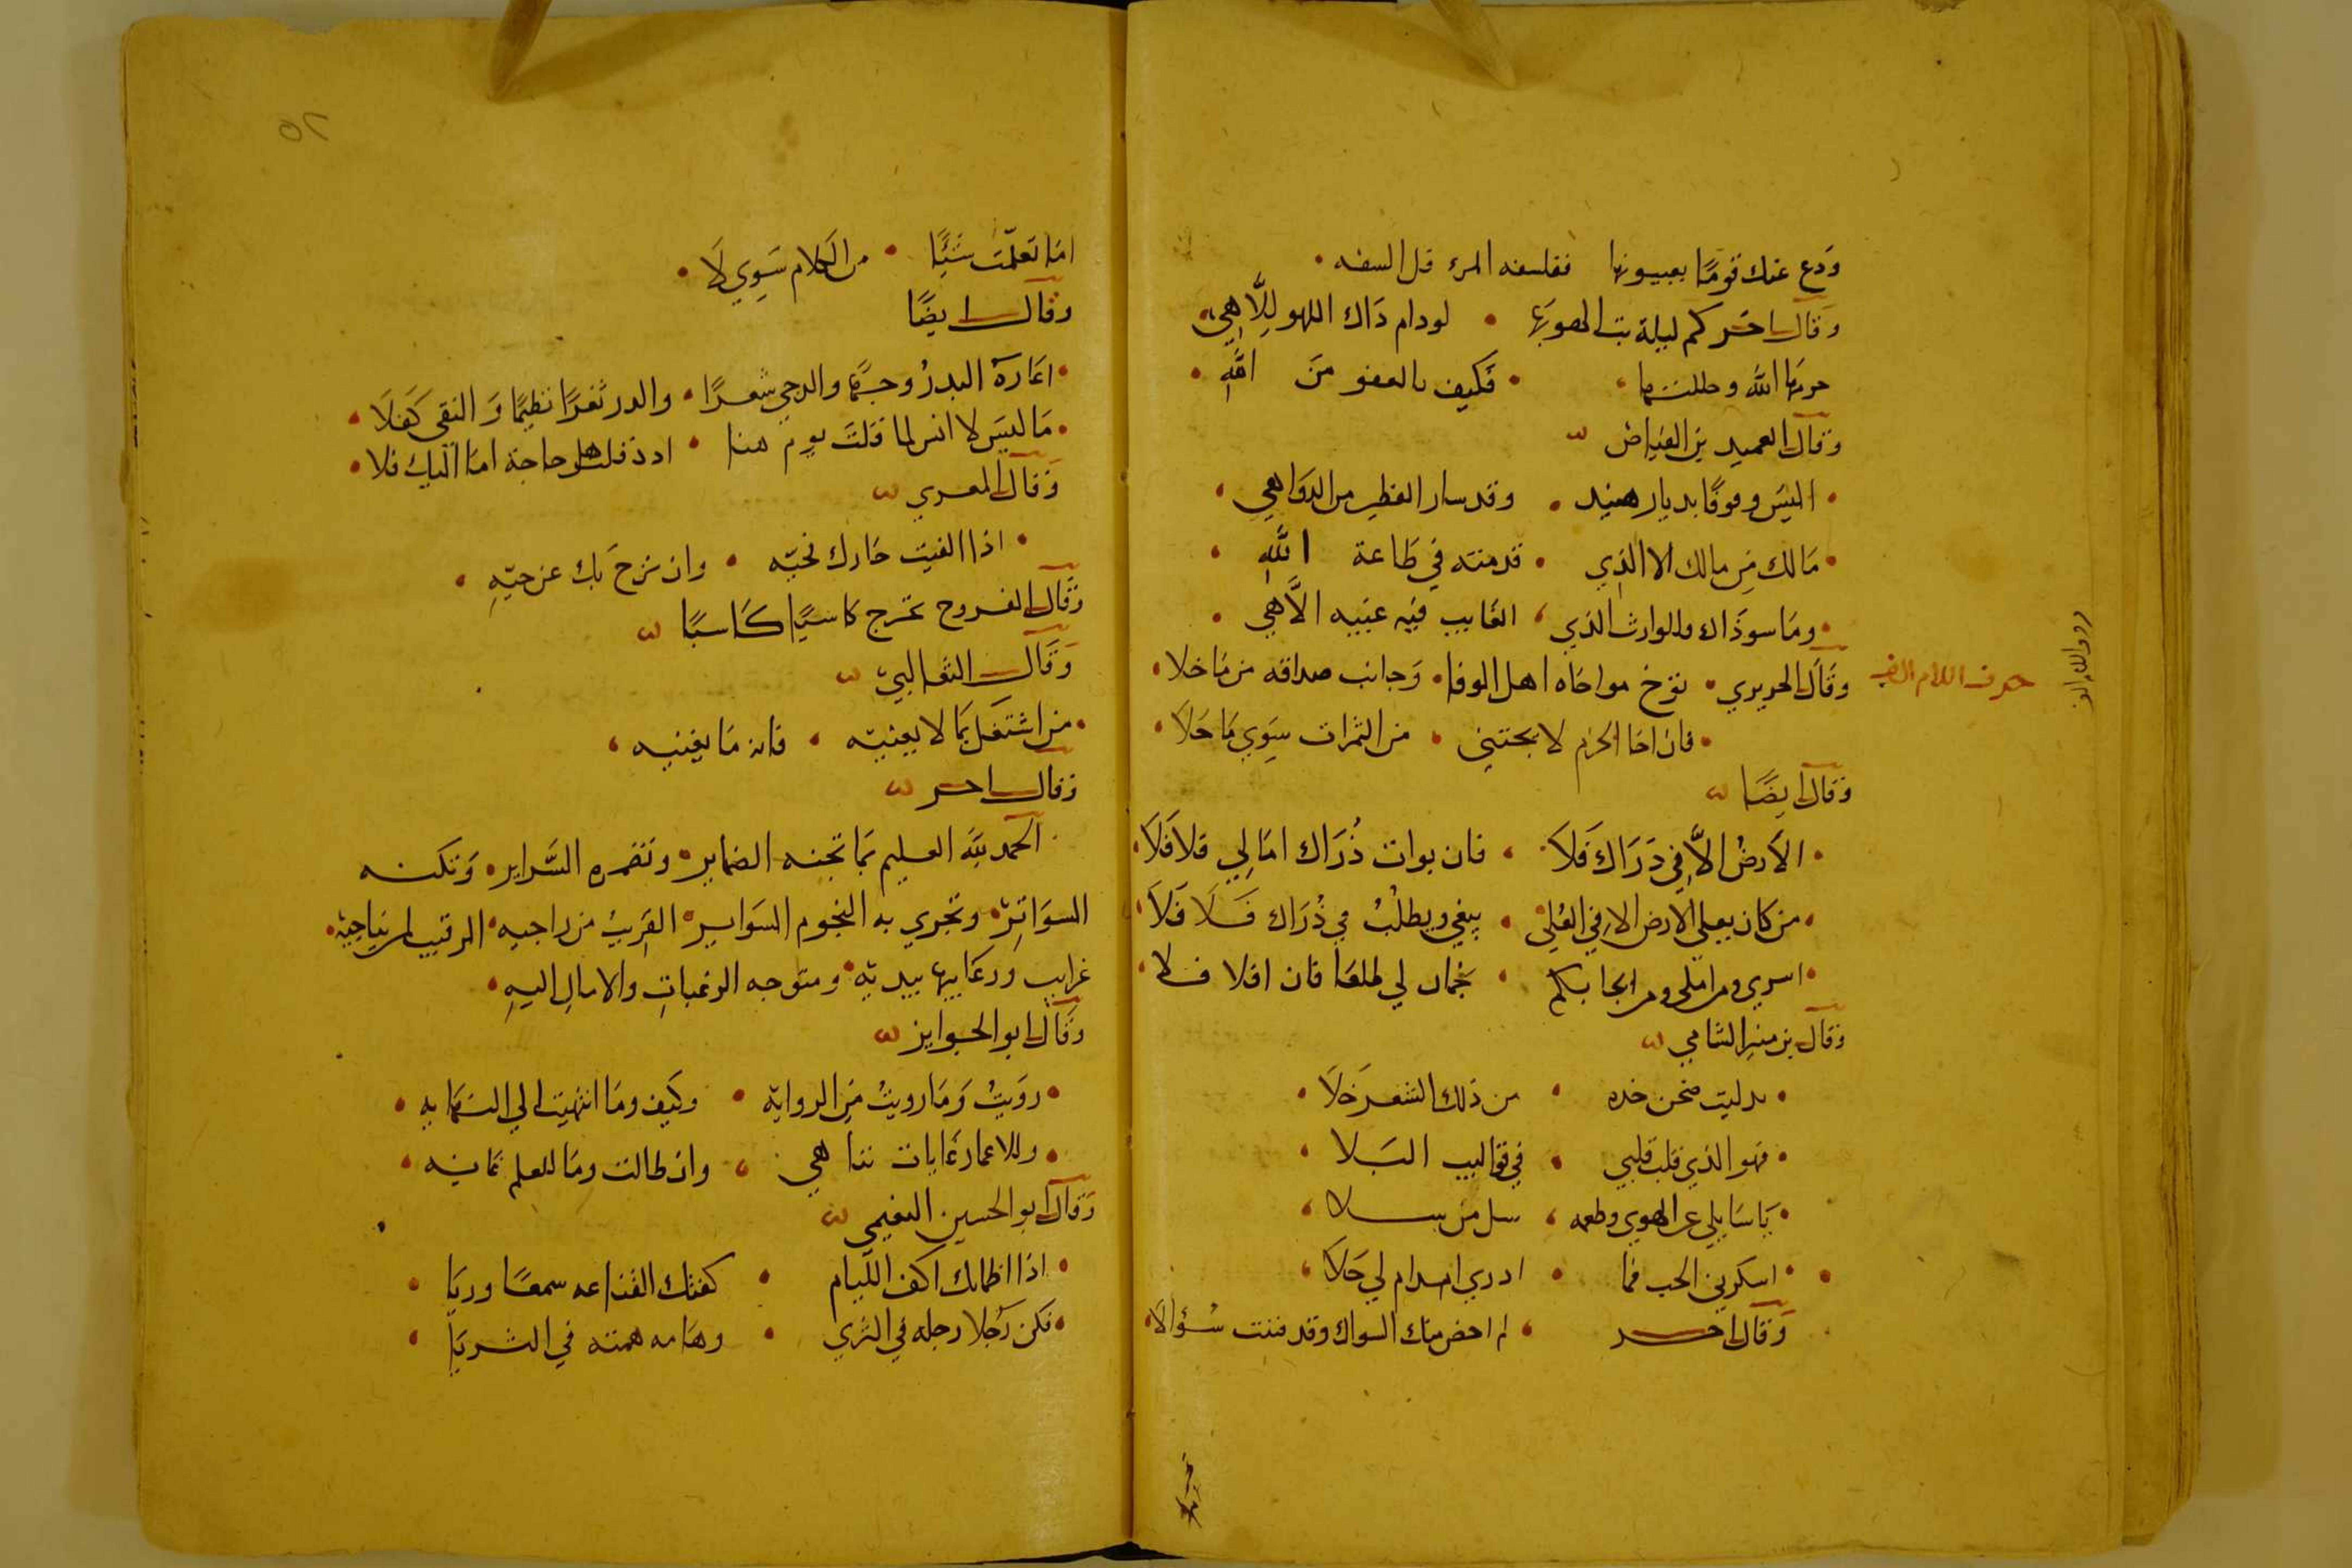 ودع عنك قومًا يعيبونها ففلسفه المرء قل السفه
وقال اخر كم ليلة بت الهو بها لو دام ذاك اللهو للاهي
حرمها الله وحللتها فكيف بالعفو من الله
وقال العميد بن الفياض
اليس وقوفًا بديار هند وقد سار القطين من الدواهي
مالك من مالك الا الذي قدمته في طاعة الله
وما سوى ذاك والوارث الذي الغايب فيه عيبه اللاهي
حرف اللام الف
وقال الحريري توخ مواخاه اهل الوفا وجانب صداقه من ما خلا
فان اخا الحزم لا يجتني من الثمرات سوي ما حلا
وقال ايضًا
الارض الا في دراك فلا فان بوات ذراك امالي فلا فلا
من كان يعلي الارض الا في العلي يبغي ويطلب في ذراك فلا فلا
اسري ومن املي ومن بكم نجمان لي طلعا فان افلا فلا
وقال بن منير الشامي
بدليت صحن خده من ذلك الشعر خلا
فهو الذي قلب قلبي في قواليب البلا
يا سايلي عن الهوي وطعمه سل من سلا
اسكرني الحب فما ادري امدام لي حلا
وقال اخر لم احضر منك السواك وقد مننت سؤالا
٥٢
اما تعلمت شيئًا من الكلام سوي لا
وقال ايضًا
اعاره البدر وجهًا والدجي شعرًا والدر ثغرًا نظيمًا والنقى كفلا
ما ليس لا انس لما قلت يوم هنا اذ قلت هل حاجة اما اليك فلا
وقال المعري
اذا الفيت جارك تحبه وان نزح بك عن حيه
وقال الفروح تخرج كاسيًا كاسبًا
وقال الثعالبي
من اشتغل بما لا يعنيه فاته ما يغنيه
وقال اخر
الحمد لله العليم بما تجنه الضماير وتضمره السراير وتكنه
السواتر وتجري به النجوم السواير القريب من راجيه الرقيب لمن يناجيه
غرايب ورعايبها بيديه ومتوجه الرغبات والامال اليه
وقال ابو الجوايز
رويت وما رويت من الروايه وكيف وما انتهيت الي النهايه
وللاعمار غايات تناهي وان طالت وما للعلم غايه
وقال ابو الحسين النعيمي
اذا اظماتك اكف الليام كفتك القناعه سمعًا وريا
فكن رجلا رجله في الثري وهامه همته في الثريا